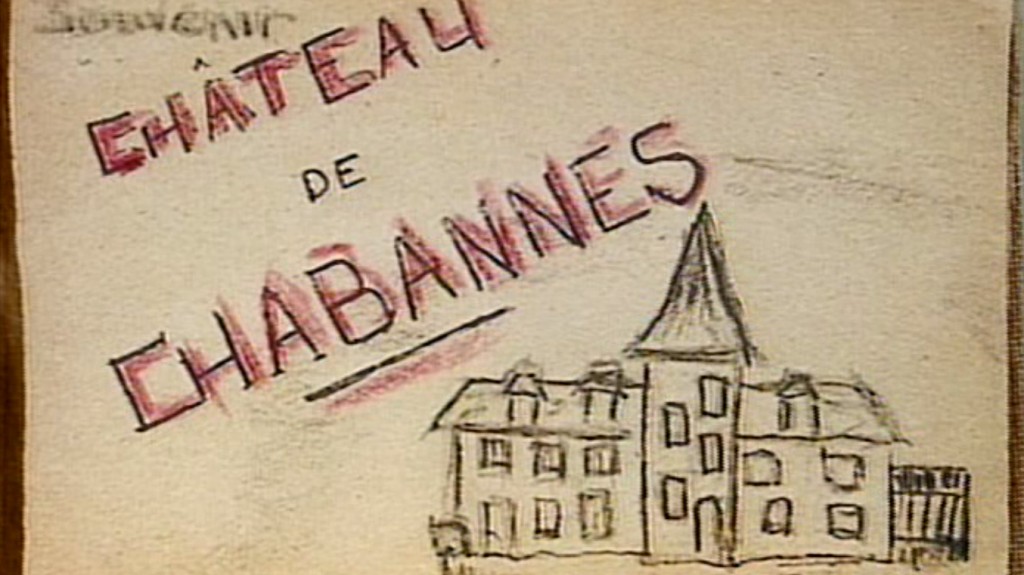 Souvenir
CHÂTEAU
DE
CHABANNES